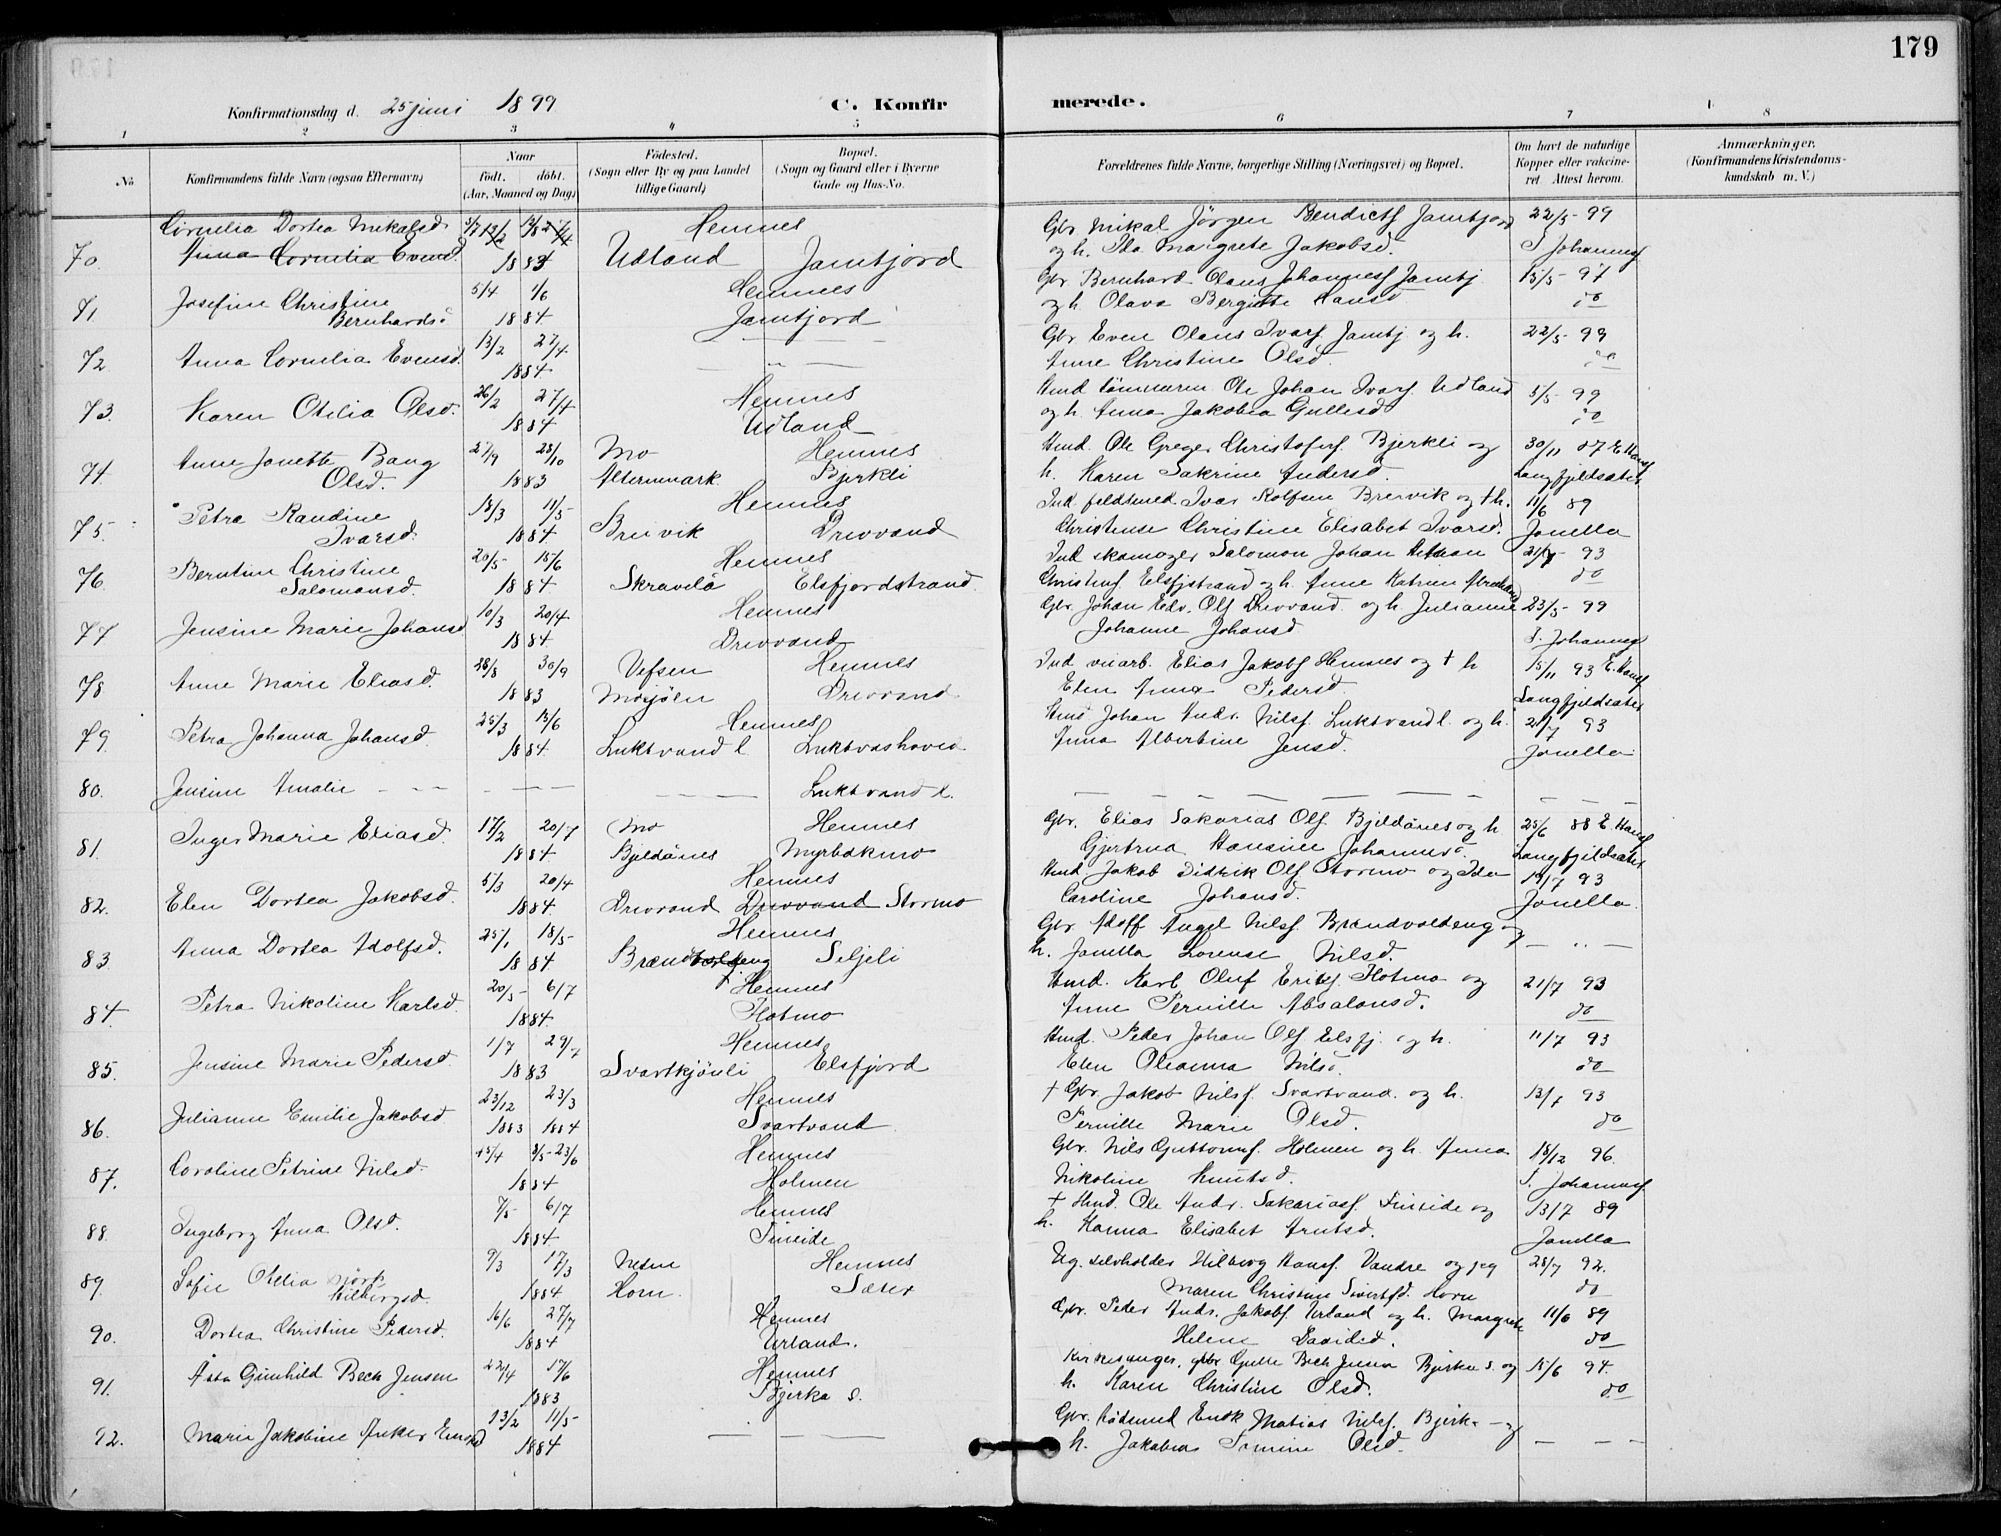 179
Konfirmationsdag d. 25 juni 1899
C. Konfirmerede.
1 2 3 4 5 6 7 8
No
Konfirmandens fulde Navn (ogsaa Efternavn)
Naar
født. døbt.
(Aar, Maaned og Dag)
Fødested.
(Sogn eller By og paa Landet
tillige Gaard)
Bopæl.
(Sogn og Gaard eller i Byerne
Gade og Hus-No.
Forældrenes fulde Navne, borgerlige Stilling (Næringsvei) og Bopæl.
Om havt de naturlige
Kopper eller vakcine-
ret. Attest herom.
Anmærkninger.
(Konfirmandens Kristendoms-
kundskab m. V.)
Cornelia Dortea Mikalsd. Hemnes Gbr Mikal Jørgen Bendictsf Jamtjord 22/5 99
70. Anna Cornilia Evensd. 1883 Udland Jamtjord og h. Ida Margrete Jakobsd. S. Johannesf
71. Josefine Christine 5/4 1/6 Hemnes Gbr. Bernhard Olaus Johannesf Jamtj 15/5 97
Bernhardsd 1884 Jamtjord og h. Olava Bergitte Hansd do
72 Anna Cornelia Evensd. 13/2 27/4 — " — Gbr Even Olaus Ivarsf. Jamtj og h. 22/5 99
1884 Anne Christine Olsd. do
73. Karen Otilia Olsd. 26/2 27/4 Hemnes Hmd tömmerm Ole Johan Ivarsf. Udland 5/5 99
1884 Udland og h. Anna Jakobea Gullesd do
74. Anne Jonette Bang 27/9 28/10 Mo Hemnes Hmd. Ole Greger Christofersf. Bjerkli og 30/11 87 E. Hansf
Olsd. 1883 Alternmark Bjerkli h. Karen Sakrine Andersd. Langfjeldsæter
75 Petra Randine 18/3 11/5 Hemnes Ind. feldtmed. Ivar Rolfsen Breivik og † h. 11/6 89
Ivarsd. 1884 Breivik Drevvand Christense Christine Elisabet Ivarsd. Jonella
76. Berntine Christine 20/5 15/6 Hemnes Ind skomager Salomon Johan 21/7 93
Salomonsd. 1884 Skravelå Elsfjordstrand Elsfjstrand og h. Anne Katrine do
77 Jensine Marie Johansd 10/3 20/4 Hemnes Gbr. Johan Edv. Olsf Drevvand og h. Julianne 23/5 99
1884 Drevvand Johanne Johansd S. Johannesf
78 Anne Marie Eliasd. 28/8 30/9 Vefsen Hemnes Ind veiarb. Elias Jakobsf Hemnes og † h 15/11 93 E. Hansf
1883 Mosjöen Drevvand Elen Anna Pedersd. Langfjeldsæter
79. Petra Johanna Johansd. 25/3 15/6 Hemnes Hmd Johan Andr. Nilsf. Luktvandl. og h. 21/7 93
1884 Luktvand l Luktvashoved Anna Albertine Jensd. Jonella
80. Jensine Amalie — — — — — — Luktvand l. — — — — — — —
81. Inger Marie Eliasd. 17/2 20/7 Mo Hemnes Gbr. Elias Sakarias Olsf. Bjeldånes og h 25/6 88 E. Hansf
1884 Bjeldånes Myrbakmo Gjertrud Hansine Johannesd. Langfjeldsæter
82. Elen Dortea Jakobsd. 5/3 20/4 Hemnes Hmd. Jakob Didrik Olsf Stormo og Ida 19/7 93
1884. Drevvand Drevvand Stormo Caroline Johansd. Jonella
83 Anna Dortea Adolfsd. 25/1 18/5 Hemnes Gbr Adolf Angel Nilsf. Brændvoldeng og — " —
1884 Seljeli h. Jonella Lorense Nilsd.
84. Petra Nikoline Karlsd 20/5 6/7 Hemnes Hmd. Karl Oluf Eriksf. Flotmo og 21/7 93
1884. Flotmo Anne Pernille Absalonsd. do
85. Jensine Marie Pedersd. 1/7 29/7 Hemnes Hmd. Peder Johan Olsf Elsfj. og h. 11/7 93
1883 Svartkjönli Elsfjord Elen Oleanna Nilsd. do
86. Julianne Emilie Jakobsd 23/12 23/3 Hemnes † Gbr. Jakob Nilsf. Svartvand og h. 13/7 93
1883 1884 Svartvand Pernille Marie Olsd. do
87. Caroline Petrine Nilsd. 15/4 3/5-23/6 Hemnes Gbr. Nils Guttormsf. Holmen og h. Anna 18/12 96.
1884 Holmen Nikoline Knutsd. S. Johannesf
88. Ingeborg Anna Olsd. 7/5 6/7 Hemnes † Hmd. Ole Andr. Sakariasf. Fineide og 13/7 89
1884 Fineide h. Hanna Elisabet Arntsd. Jonella
89. Sofie Otelia Mörk 9/3 17/3 Nesna Hemnes Ug. selvholder Hilberg Hansf. Vandre og pig 28/7 92.
Hilbergsd. 1884 Horn. Sæter Maren Christine Sivertsd. Horn do
90. Dortea Christine Pedersd. 16/6 27/7 Hemnes Gbr. Peder Andr. Jakobsf. Urland og h. Margrete 11/6 89
1884 Urland. Helene Davidsd. do
91. Asta Gunhild Bech Jensen 22/4 17/6 Hemnes Kirkesanger, gbr Gulle Bech Jensen Bjerka s. og 15/6 94.
1883 Bjerka s. h. Karen Christine Olsd. do
92. Marie Jakobine Anker Enoksd 13/2 11/5 — — — Gbr. Enok Matias Nilsf. Bjerka og
1884 h. Jakobea Tomine Olsd. — — —